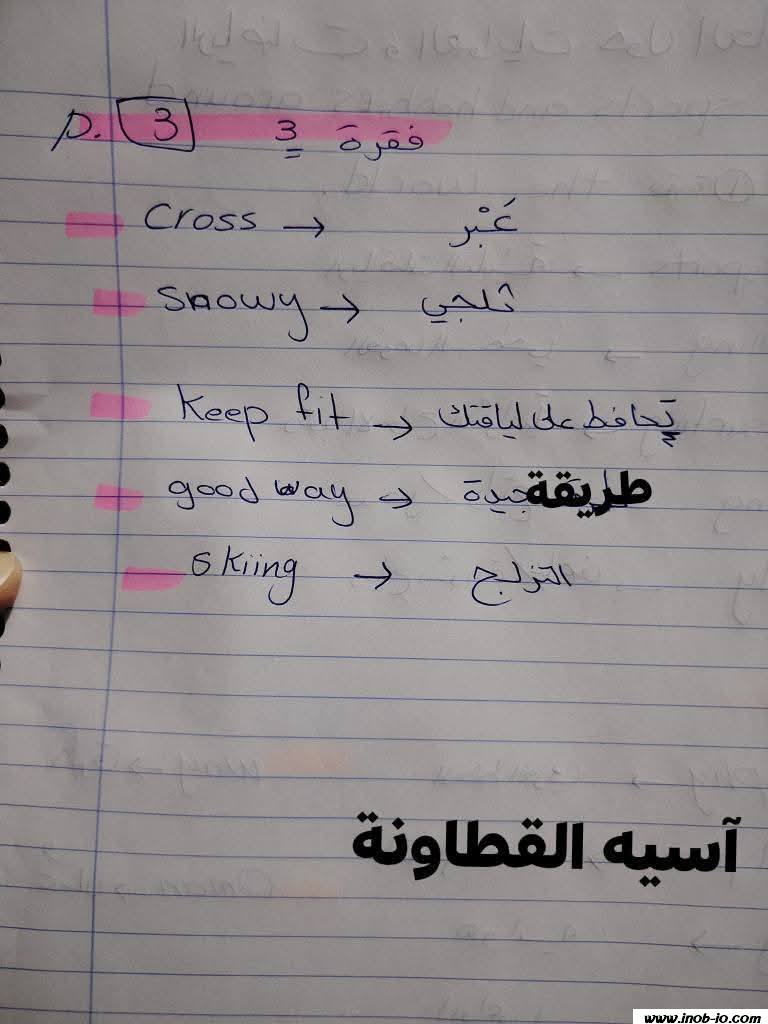 p. 3 فقرة 3
Cross → عَبْر
Snowy → ثلجي
Keep fit → تَحافظ على لياقتك
good way → طريقة جيدة
skiing → التزلج
آسيه القطاونة
www.inob-io.com